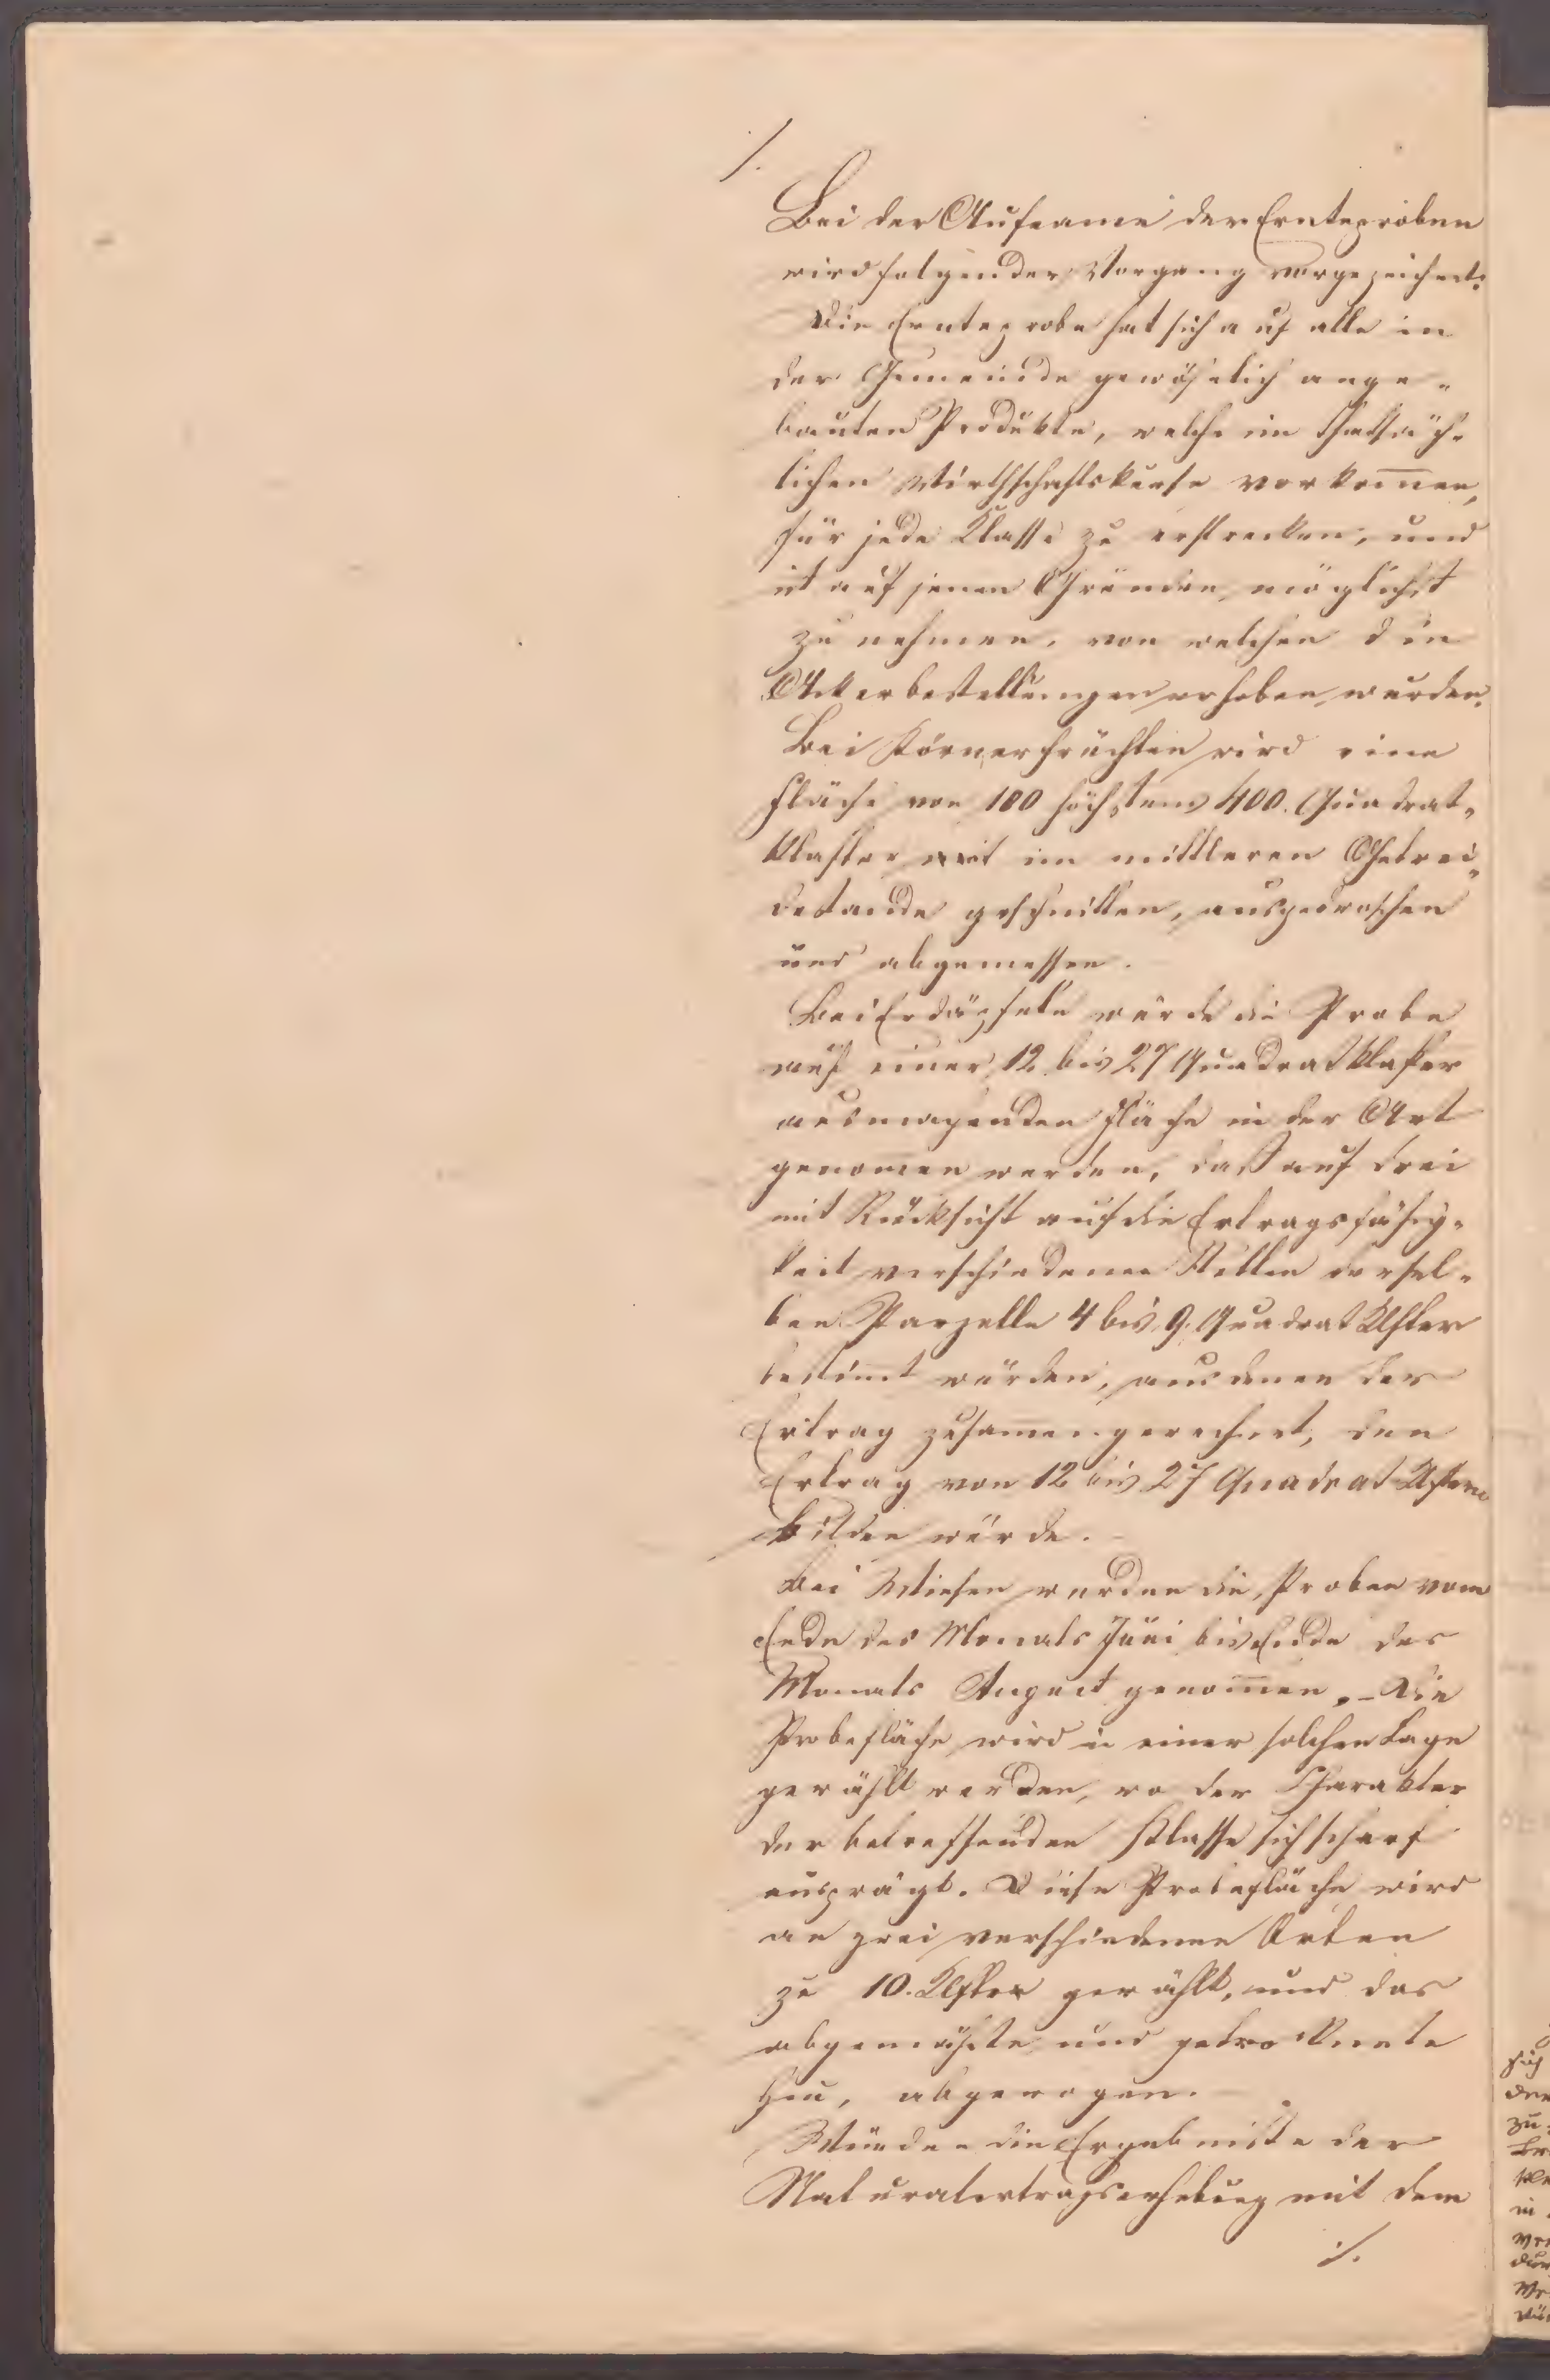 ./.
Bei der Aufname der Ernteproben
wird folgender Vorgang vorgezeichnet:
Die Ernteprobe hat sich auf alle in
der Gemeinde gewöhnlich ange-
bauten Produkte, welche im thatsäch-
lichen Wirthschaftskurse vorkomen,
für jede Klasse zu erstrecken, und
ist auf jenen Gründen möglichst
zu nehmen, von welchen die
Ackerbestellungen erhoben wurden.
Bei Körnerfrüchten wird eine
Fläche von 100 höchstens 400. Quadrat-
klafter mit im mittleren Getrei-
destande geschnitten, ausgedroschen
und abgemessen.
Bei Erdäpfeln würde die Probe
auf einer 12 bis 27 Quadratklafter
ausmachenden Fläche in der Art
genomen werden, daß auf drei
mit Rücksicht auf die Ertragsfähig-
keit verschiedenen Stellen dersel-
ben Parzelle 4 bis 9. Quadrat Klfter
bestimt würden, aus denen der
Ertrag zusamengerechnet, den
Ertrag von 12 bis 27 Quadrat Klftern
bilden würde.
Bei Wiesen werden die Proben vom
Ende des Monats Juni bis Ende des
Monats August genomen. – Die
Probefläche wird in einer solchen Lage
gewählt werden, wo der Charakter
der betreffenden Klasse sich scharf
ausprägt. Diese Probefläche wird
an zwei verschiedenen Orten
zu 10. Klfter gewählt, und das
abgemähte und getrocknete
Heu, abgewogen.
Würden die Ergebnisse der
Naturalertragserhebung mit dem
./.